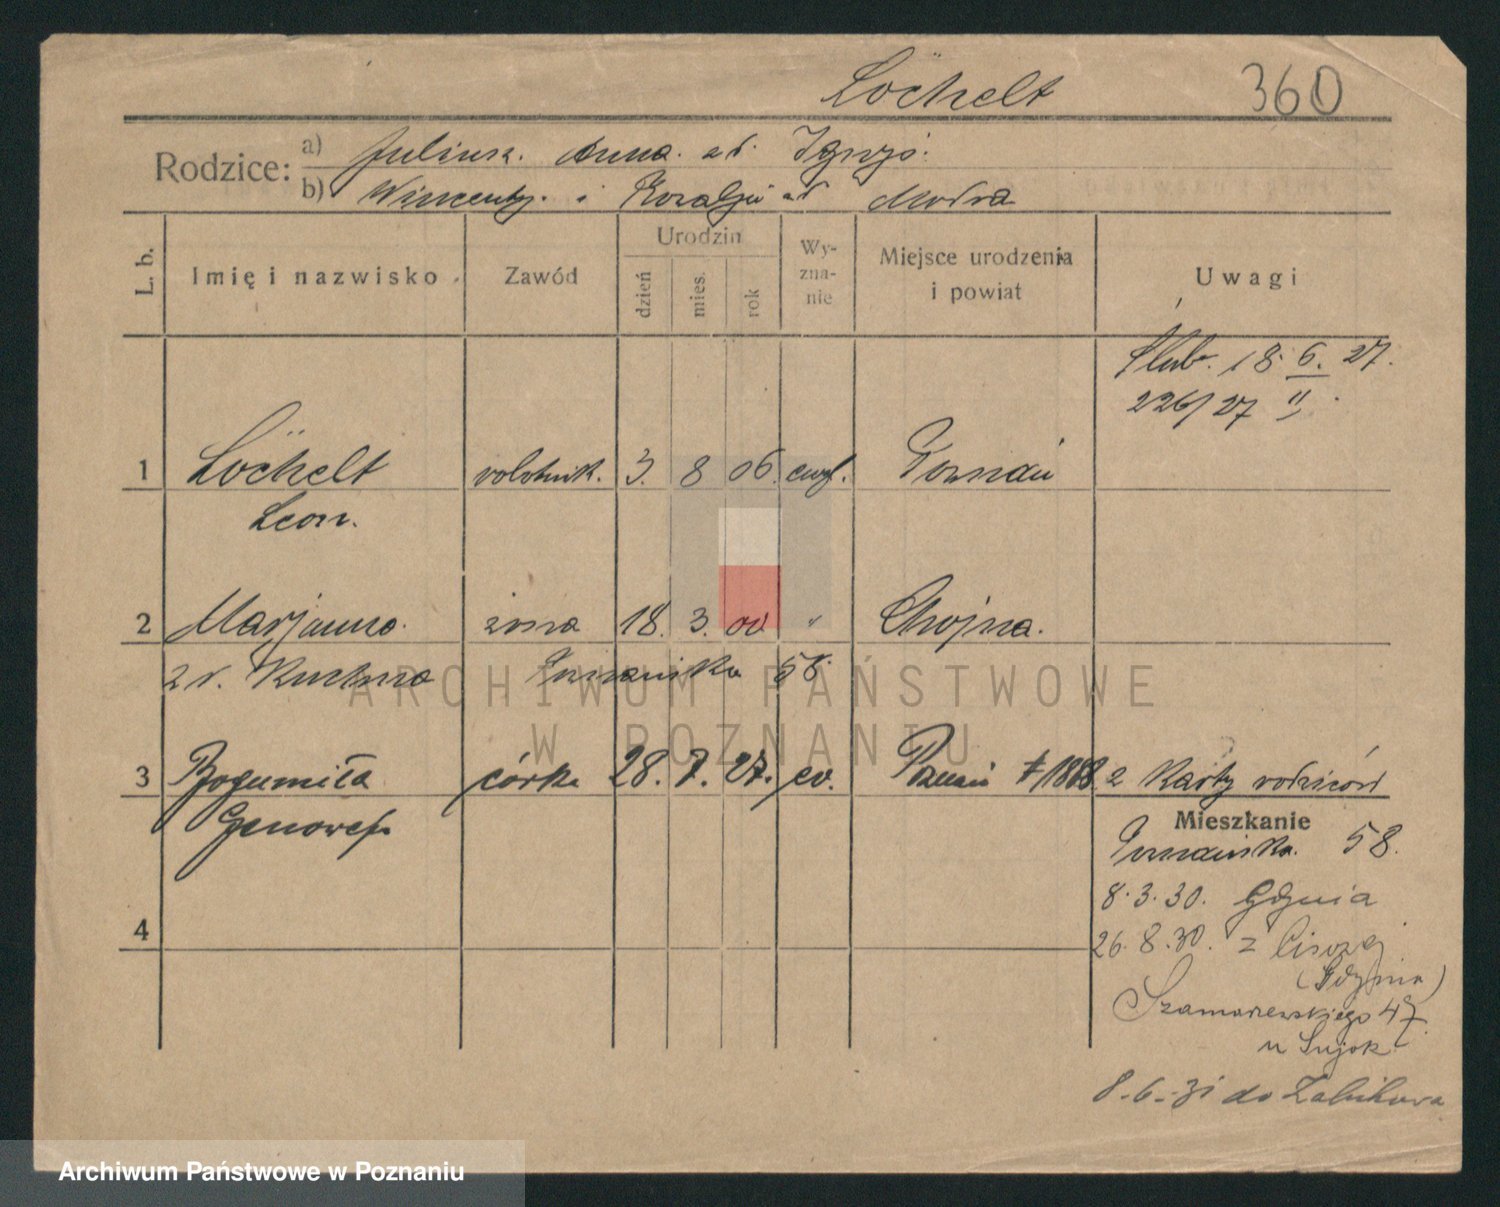 Löchelt 360
Rodzice: a) Juliusz. Anna. z d.
b) Wincenty. i Rozalji z d. Modra
L. b. Imię i nazwisko Zawód Urodzin Wy-zna-nie Miejsce urodzenia i powiat Uwagi
dzień mies. rok
Ślub. 18. 6. 27.
226/27 II
1 Löchelt robotnik. 3. 8 06. ewg. Poznań
Leon.
2 Marjanna. żona 18. 3. 00 " Chojna.
z d. Poznańska 58.
3 Bogumiła córka 28. 7. 27. ev. Poznań 1888 z Karty rodziców
Genowef.
Mieszkanie
Poznańska. 58.
8.3.30. Gdynia
4
26.8.30. z Cisowej
(Gdynia)
Szamarzewskiego 47
u
8.-6.-31 do Żabikowa
ARCHIWUM PAŃSTWOWE
W POZNANIU
Archiwum Państwowe w Poznaniu